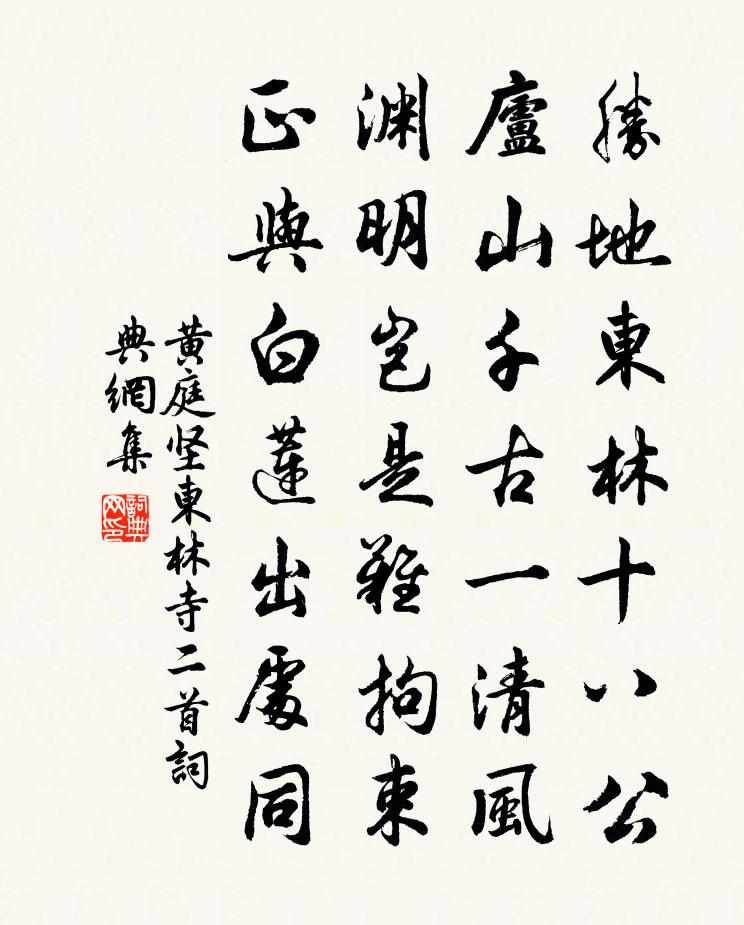 勝地東林十八公
廬山千古一清風
渊明岂是難拘束
正與白蓮出處同
黄庭坚東林寺二首詞
典網集
詞典
网印